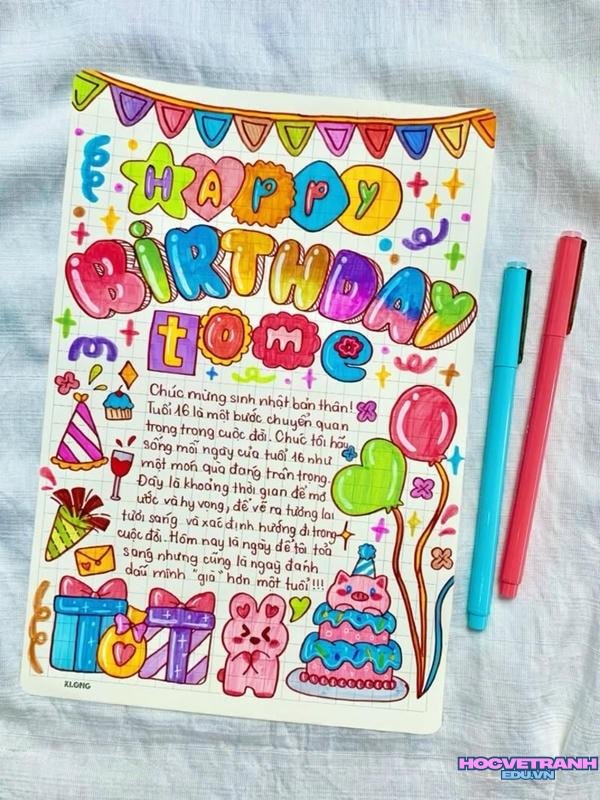 HAPPY
BiRTHDAY
tome
Chúc mừng sinh nhật bản thân!
Tuổi 16 là một bước chuyển quan
trọng trong cuộc đời. Chúc tôi hãy
sống mỗi ngày của tuổi 16 như
một món quà đáng trân trọng.
Đây là khoảng thời gian để mơ
ước và hy vọng, để vẽ ra tương lai
tươi sáng và xác định hướng đi trong
cuộc đời. Hôm nay là ngày để tôi toả
sáng nhưng cũng là ngày đánh
dấu mình "già" hơn một tuổi!!!
KLONG
HOCVETRANH
EDU.VN